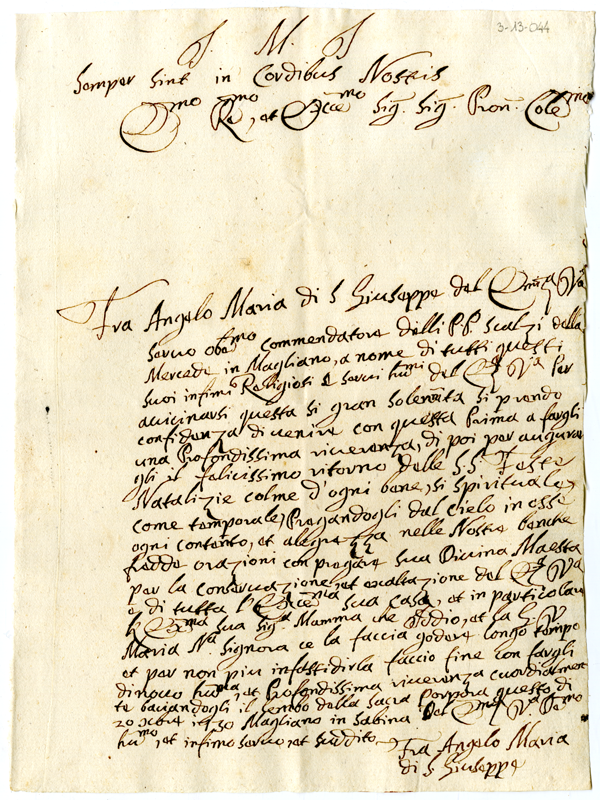 3-13-044
J. M. J
Semper Sint in Cordibus Nostis
Emo Rmo, et Eccmo Sig. Sig. Pron. Colemo
Fra Angelo Maria di S Giuseppe del Emza Va
servo obbmo commendatore delli P.P. Scalzi della
Mercede in Magliano, a nome di tutti questi
suoi infimi Religiosi e servi humi del Ea Va per
avicinarsi questa si gran solennta si prende
confidenza di venire con questa Prima a fargli
una Profondissima riverenza, di poi per augurar
gli il felicissimo ritorno delle S.S. Feste
Natalizie colme d'ogni bene, si spirituale
come temporale, Pregandogli dal cielo in esse
ogni contento, et alegrezza nelle Nostre benche
fredde orazioni con pregare Sua Divina Maesta
per la conservazione, et esaltazione del Ea Va
e di tutta l'Eccma sua casa, et in particolare
la Eccma sua Siga Mamma che Iddio, et la
Maria Na Signora ce la faccia godere longo tempo
et per non piu infastidirla faccio fine con fargli
dinovo huma, et Profondissima riverenza cuordialmen
te baciandogli il lembo della Sacra Porpora questo di
20 Xbre 1730 Magliano in Sabina Del Emza Va Remo
humo, et infimo servo, et suddito
Fra Angelo Maria
di S Giuseppe